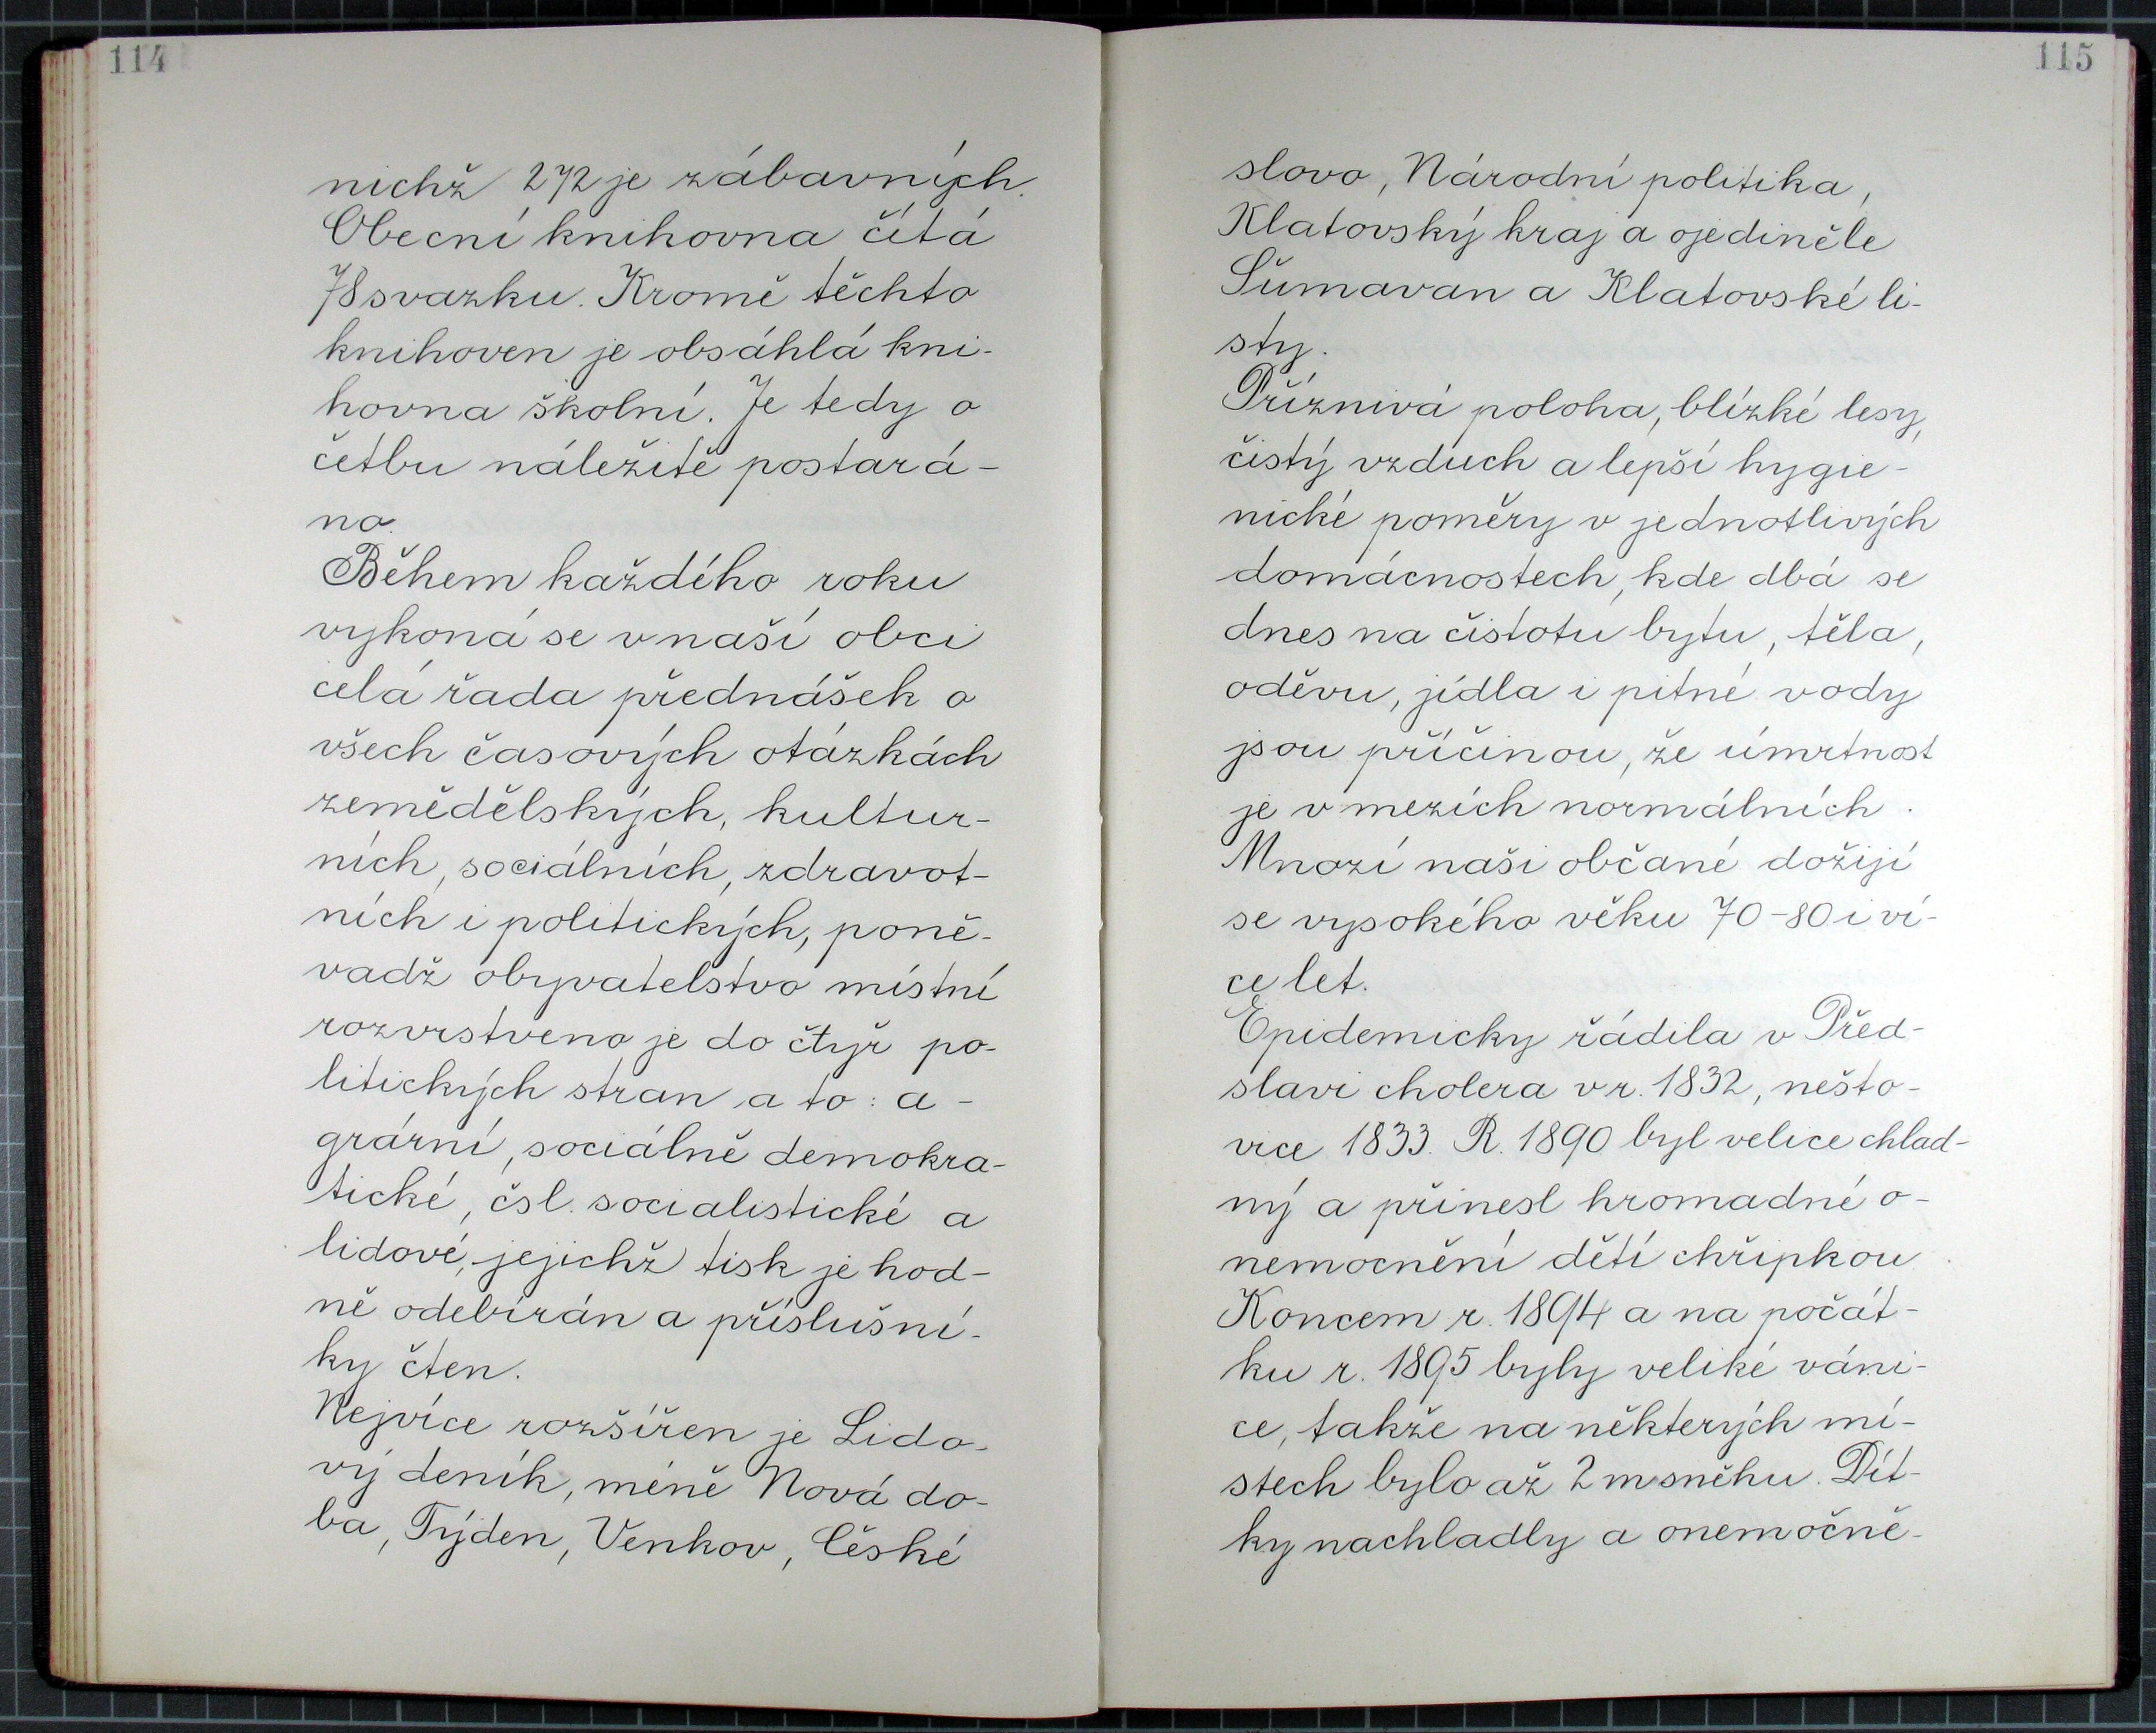 114
nichž 272 je zábavných.
Obecní knihovna čítá
78 svazku. Kromě těchto
knihoven je obsáhlá kni-
hovna školní. Je tedy o
četbu náležitě postará-
no.
Během každého roku
vykoná se v naší obci
celá řada přednášek o
všech časových otázkách
zemědělských, kultur-
ních, sociálních, zdravot-
ních i politických, poně-
vadž obyvatelstvo místní
rozvrstveno je do čtyř po-
litických stran a to: a-
grární, sociálně demokra-
tické, čsl. socialistické a
lidové, jejichž tisk je hod-
ně odebírán a příslušní-
ky čten.
Nejvíce rozšířen je Lido-
vý deník, méně Nová do-
ba, Týden, Venkov, České
115
slovo, Národní politika,
Klatovský kraj a ojediněle
Šumavan a Klatovské li-
sty.
Příznivá poloha, blízké lesy,
čistý vzduch a lepší hygie-
nické poměry v jednotlivých
domácnostech, kde dbá se
dnes na čistotu bytu, těla,
oděvu, jídla i pitné vody
jsou příčinou, že úmrtnost
je v mezích normálních.
Mnozí naši občané dožijí
se vysokého věku 70-80 i ví-
ce let.
Epidemicky řádila v Před-
slavi cholera v r. 1832, nešto-
vice 1833. R. 1890 byl velice chlad-
ný a přinesl hromadné o-
nemocnění dětí chřipkou.
Koncem r. 1894 a na počát-
ku r. 1895 byly veliké váni-
ce, takže na některých mí-
stech bylo až 2 m sněhu. Dít-
ky nachladly a onemočně-